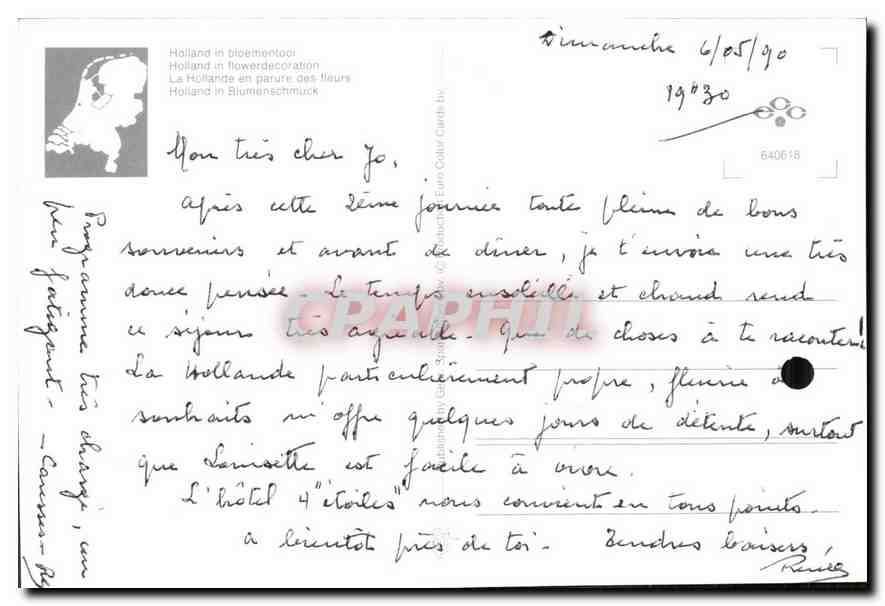 Holland in bloementooi
Holland in flowerdecoration
La Hollande en parure des fleurs
Holland in Blumenschmuck
Dimanche 6/05/90
19H30
640618
Mon très cher Jo,
Après cette 2ème journée toute pleine de bons
souvenirs et avant de dîner, je t'envoie une très
douce pensée. Le temps ensoleillé et chaud rend
ce séjour très agréable. Que de choses à te raconter!
La Hollande particulièrement propre, fleurie à
souhaits m'offre quelques jours de détente, surtout
que Louisette est facile à vivre.
L'hôtel 4 "étoiles" nous convient en tous points.
A bientôt près de toi. Tendres baisers,
Renée
Programme très chargé, un
peu fatigant.
Published by
Euro Color Cards by
CPAPHIL